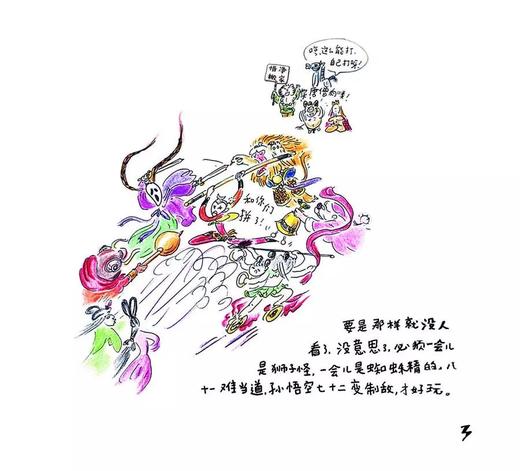 哼,这么能打,
自己打呀!
悟净
搬家
唐僧的味!
和你们
拼了!
要是那样就没人
看了,没意思了,必须一会儿
是狮子怪,一会儿是蜘蛛精的,八
十一难当道,孙悟空七十二变制敌,才好玩。
3